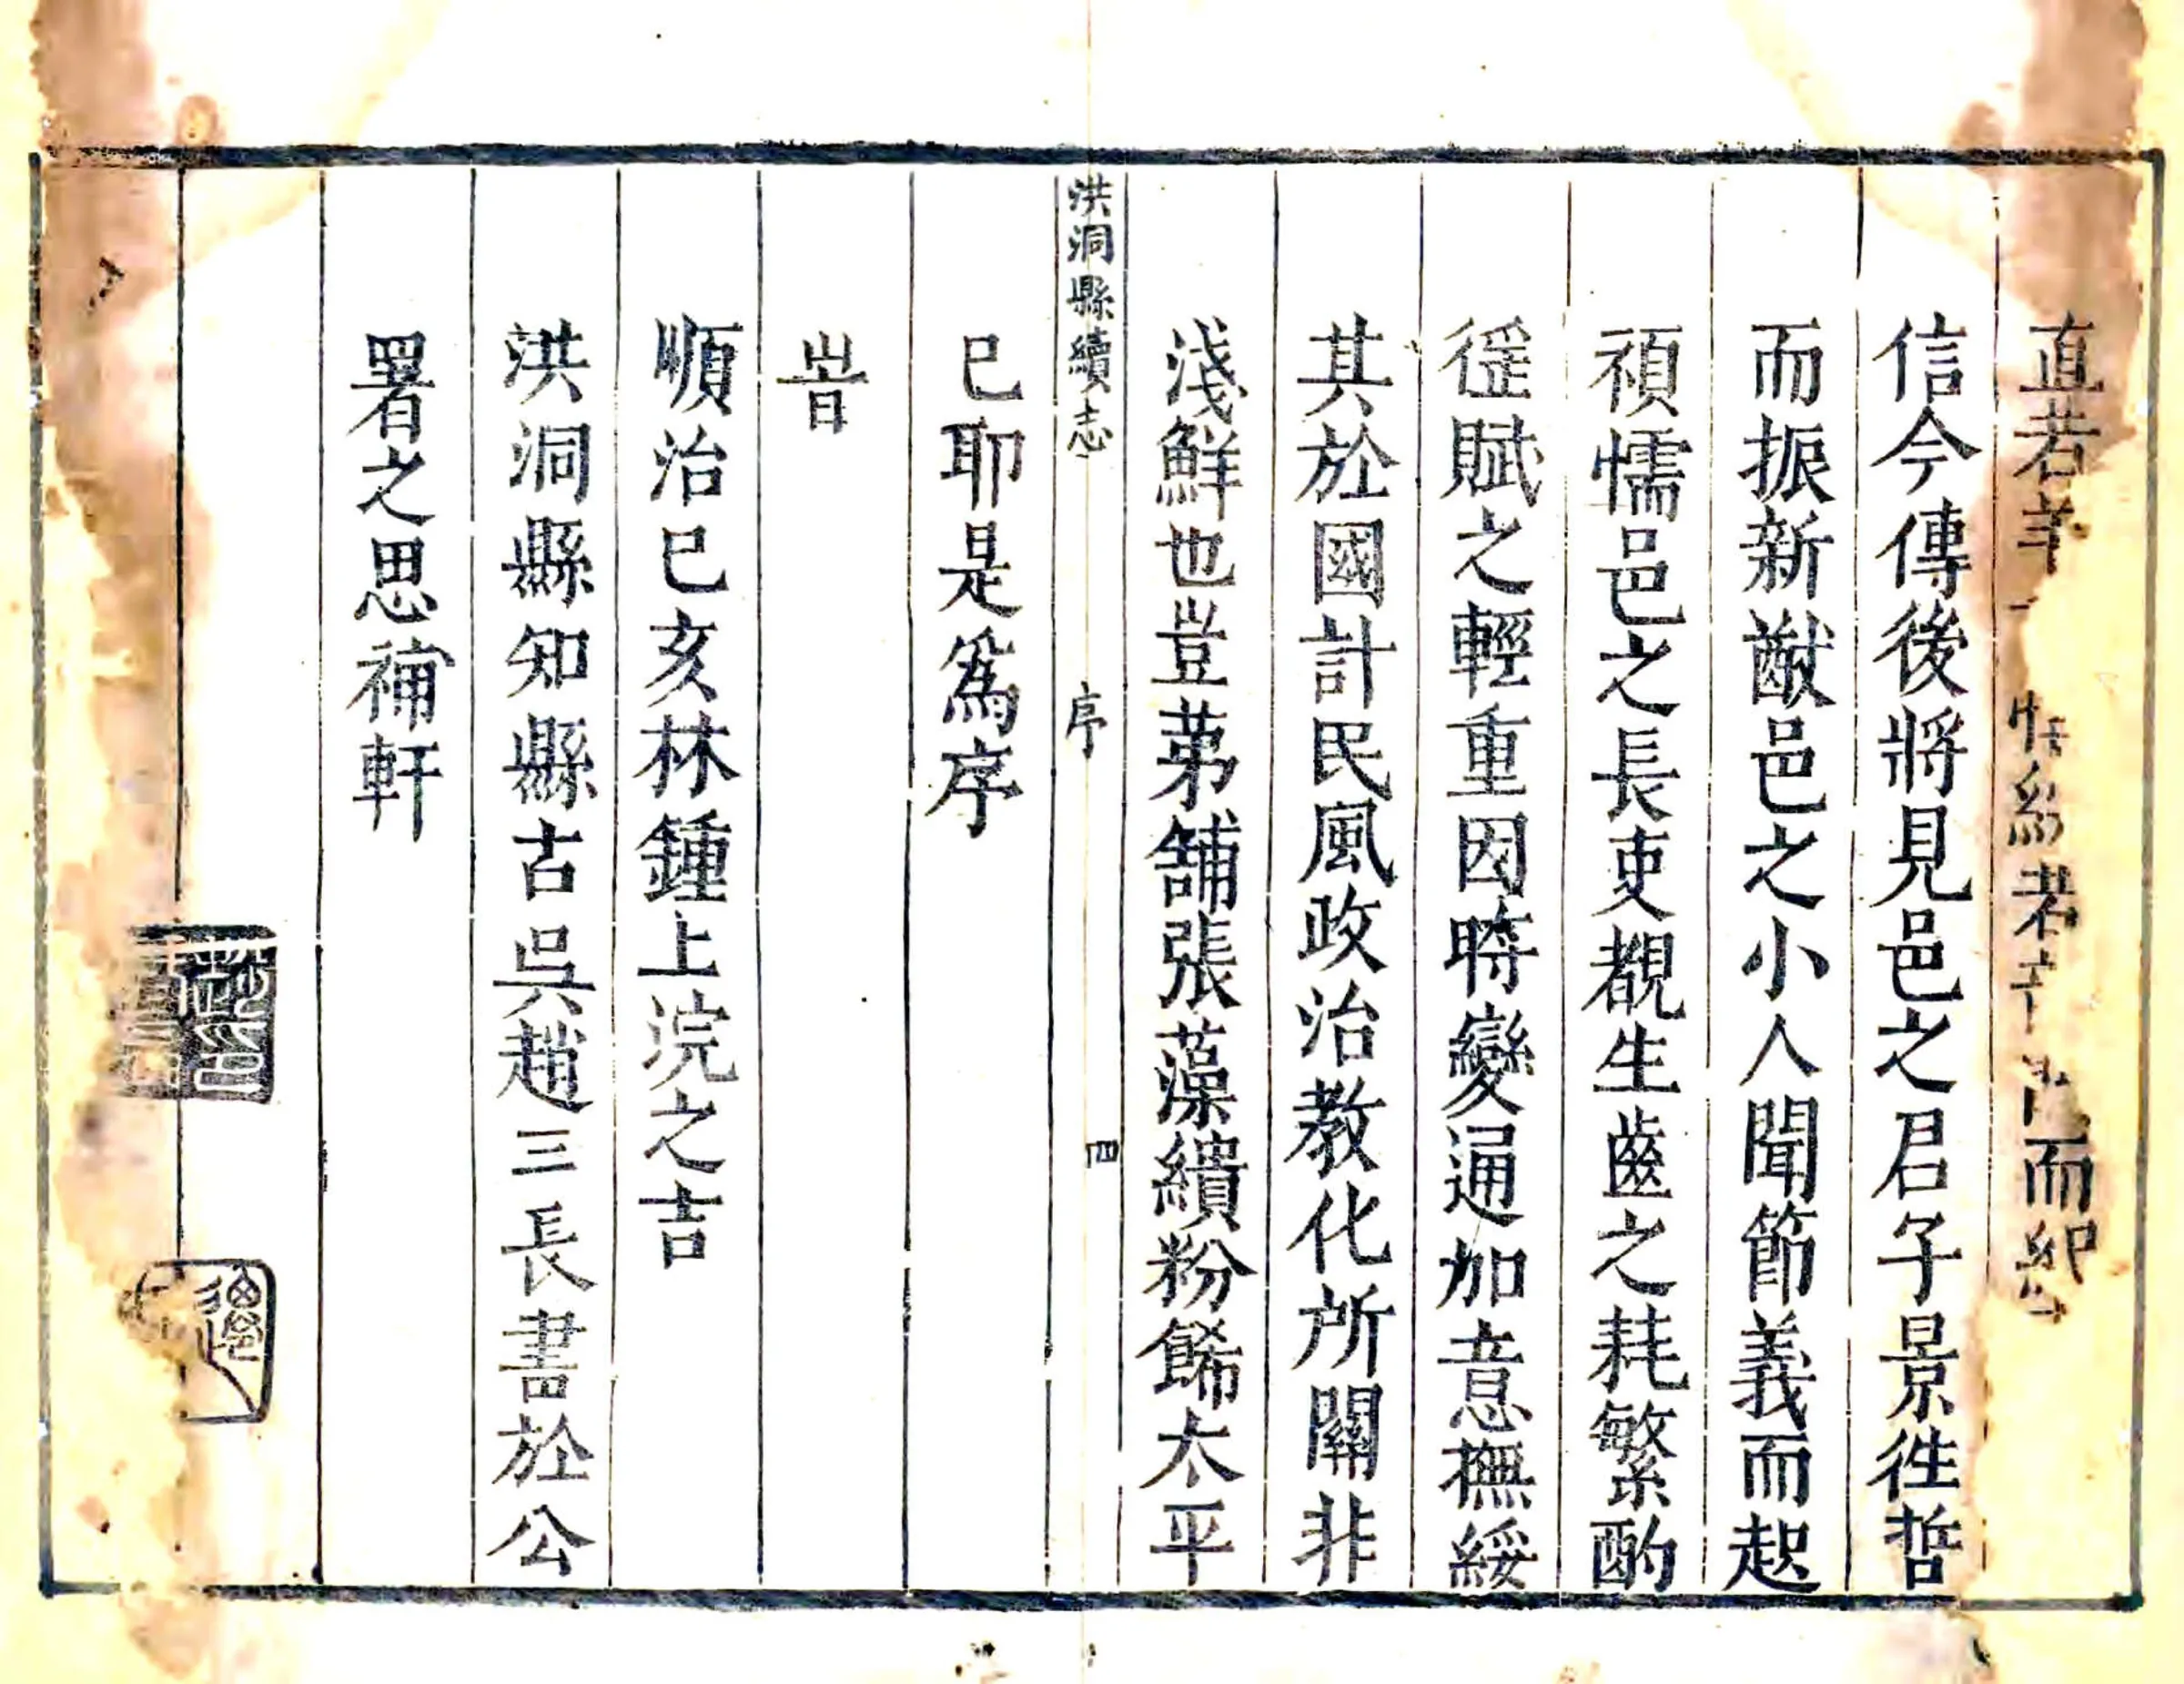 直若 而
信今傳後將見邑之君子景徃哲
而振新猷邑之小人聞節義而起
頑懦邑之長吏覩生齒之耗繁酌
徭賦之輕重因時變通加意撫綏
其於國計民風政治教化所關非
淺鮮也豈苐舗張藻繢粉餙太平
洪洞縣續志 序 四
已耶是爲序
旹
順治已亥林鍾上浣之吉
洪洞縣知縣古吳趙三長書於公
署之思補軒